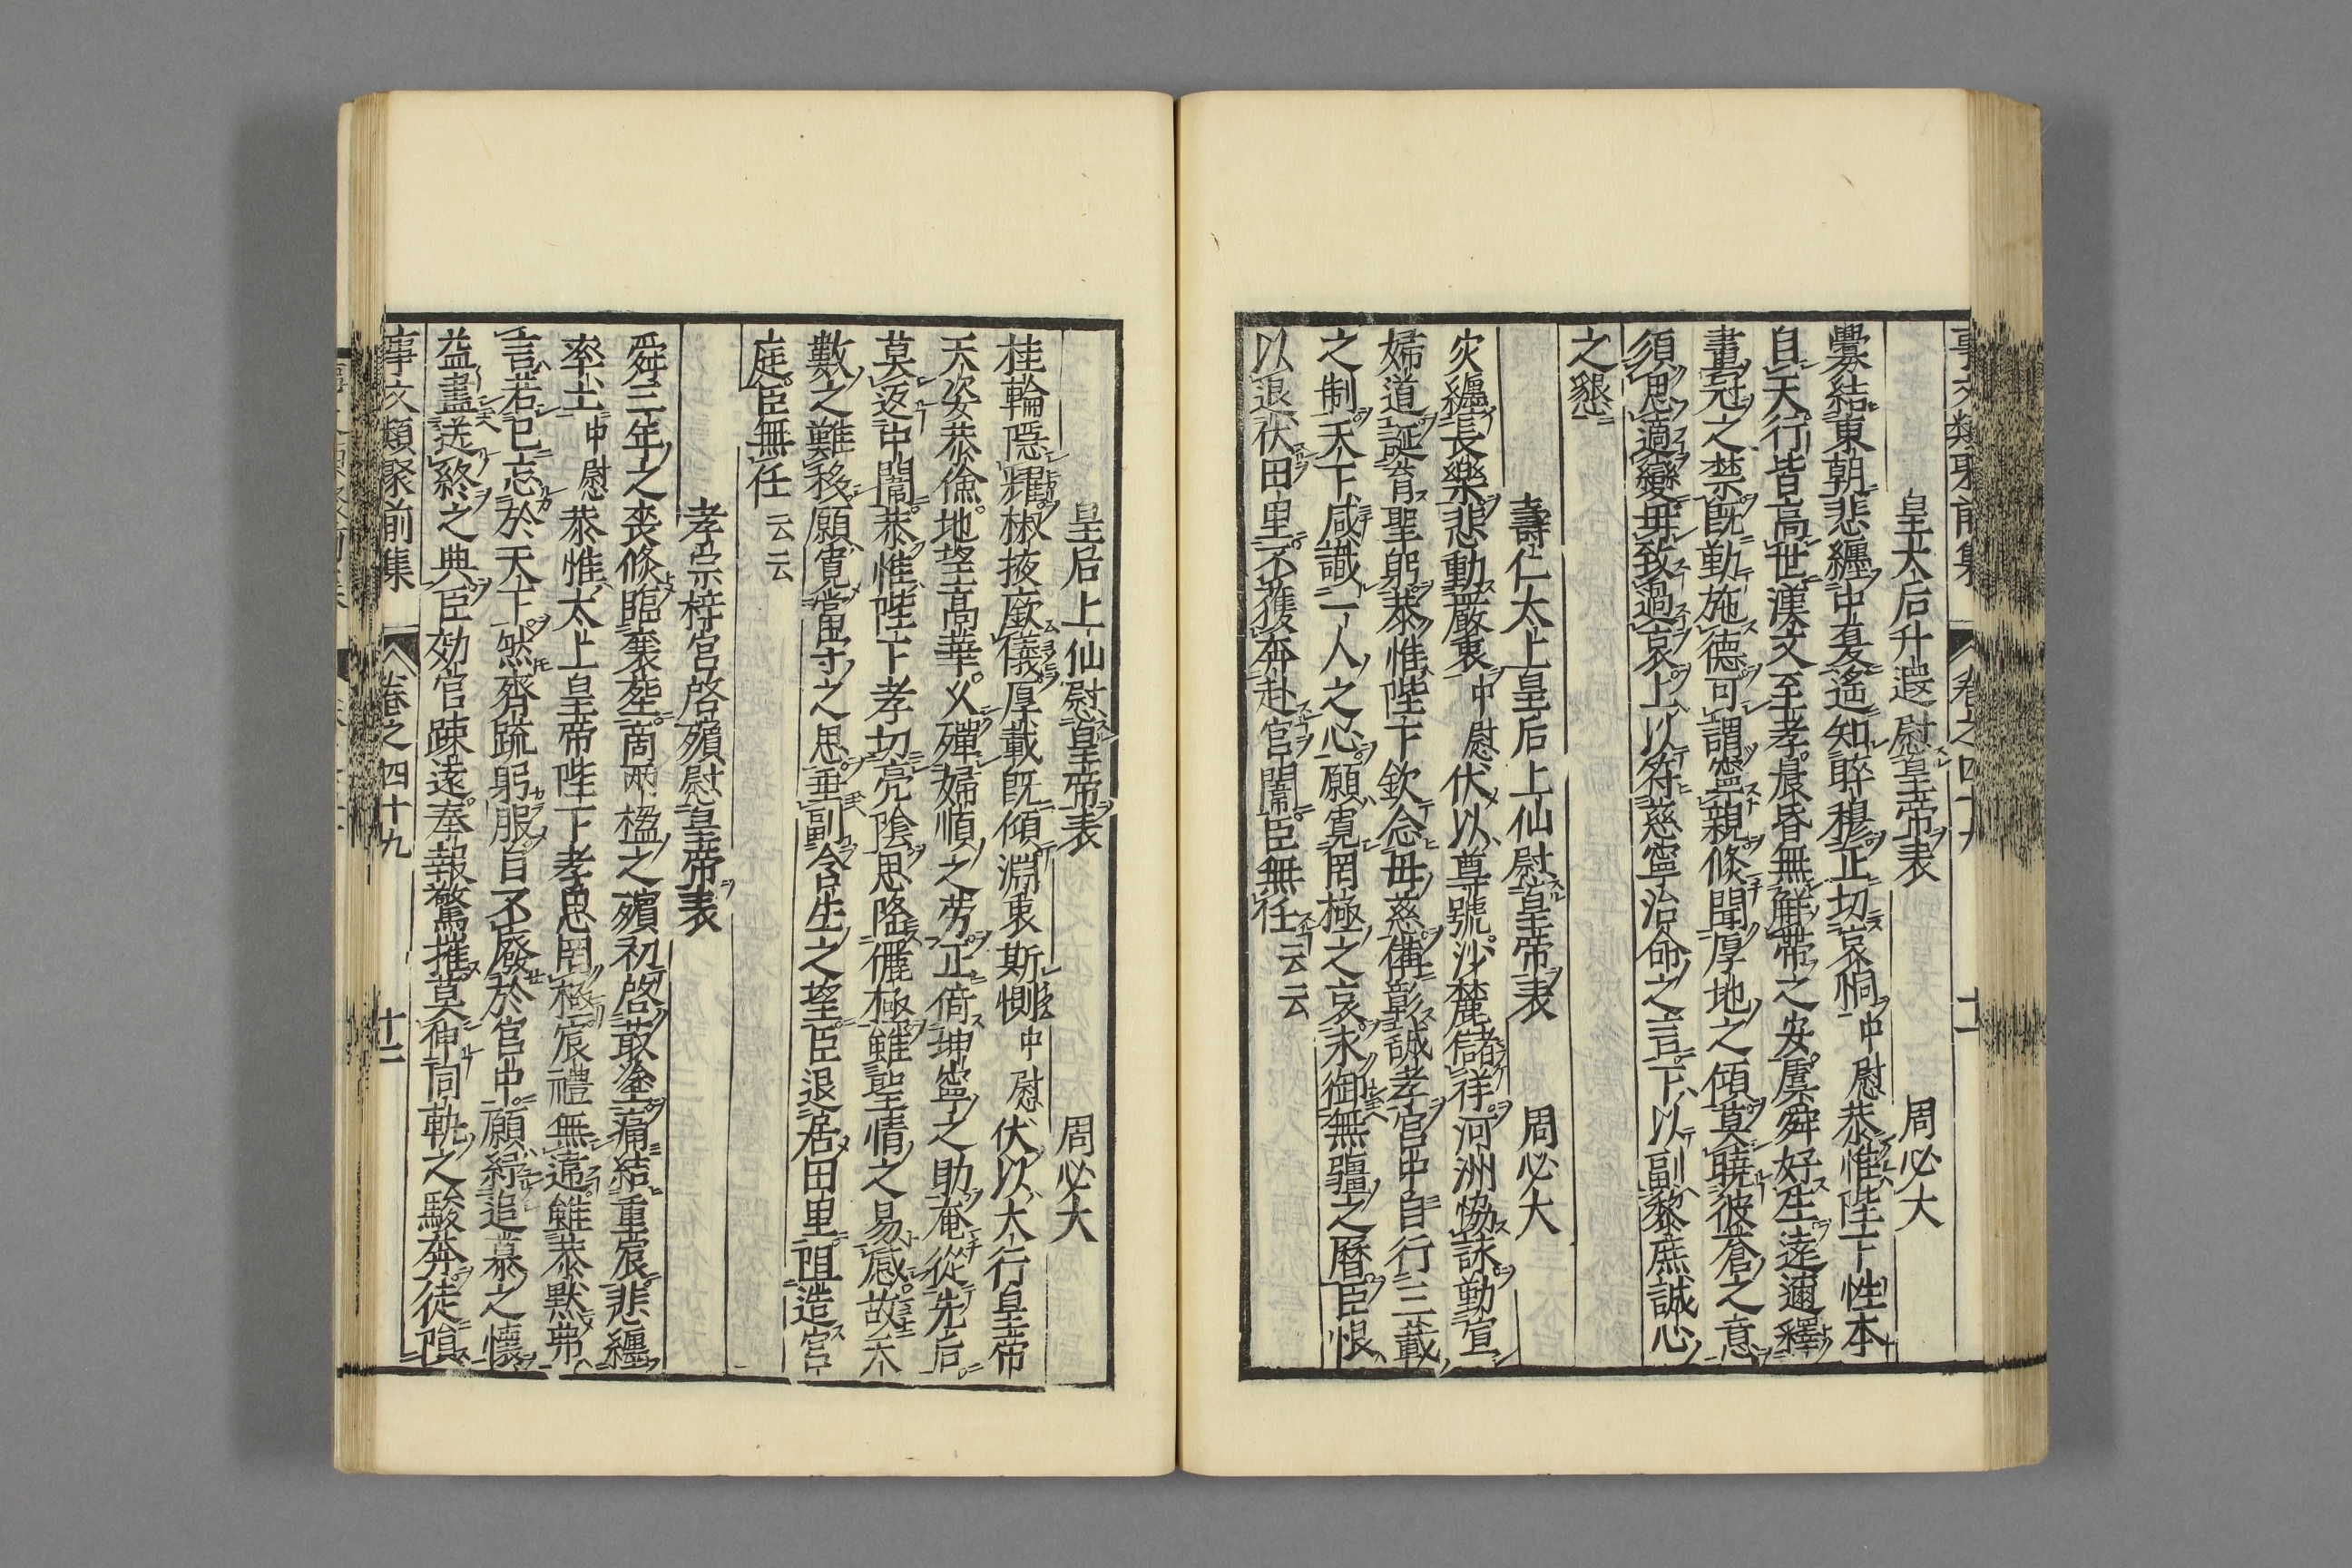 事文類聚前集 卷之四十九 十一
皇太后升遐慰皇帝表 周必大
釁結東朝悲纏中夏遙知睟穆正切哀恫中慰恭惟陛下性本
自天行皆高世漢文至孝晨昏無觧帶之安虞舜好生遠邇釋
畫冠之禁既勤施德可謂寧親倏聞厚地之傾莫曉彼蒼之意
須思適變毋致過哀上以符慈寧治命之言下以副黎庶誠心
之懇
壽仁太上皇后上仙慰皇帝表 周必大
灾纏長樂悲動嚴衷中慰伏以尊號沙麓儲祥河洲恊詠勤宣
婦道誕育聖躬恭惟陛下欽念毋慈備彰誠孝宮中自行三載
之制天下咸識一人之心願寬罔極之哀永御無疆之曆臣恨
以退伏田里不獲奔赴宮闈臣無任云云
皇后上仙慰皇帝表 周必大
桂輪隱耀椒掖虧儀厚載既傾淵衷斯惻中慰伏以大行皇帝
天姿恭儉地望高華乆殫婦順之勞正倚坤寧之助奄從先后
莫返中闈恭惟陛下孝切亮陰思隆儷極雖聖情之易感故天
數之難移願寬當宁之思垂副含生之望臣退居田里阻造宮
庭臣無任云云
孝宗梓宮啓殯慰皇帝表
舜三年之喪倏臨襄葬啇兩楹之殯初啓菆塗痛結重宸悲纏
率土中慰恭惟太上皇帝陛下孝思罔極宸禮無違雖恭默弗
言若已忘於天下然齊疏躬服自不廢於宮中願紓追慕之懷
益盡送終之典臣効官疎遠奉報驚摧莫伸同軌之駿奔徒隕
事文類聚前集 卷之四十九 十二